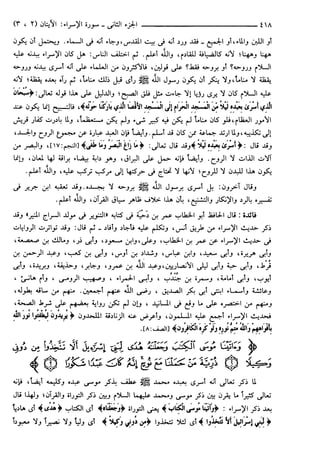 ٤١٨ ــــــــــــــــــــــــــــ الجزء الثاني - سورة الإسراء: الآيتان (٢، ٣)
أو اللبن والماء، أو الجميع - فقد ورد أنه في بيت المقدس، وجاء أنه في السماء. ويحتمل أن يكون
ههنا وههنا؛ لأنه كالضيافة للقادم، والله أعلم. ثم اختلف الناس: هل كان الإسراء ببدنه عليه
السلام وروحه؟ أو بروحه فقط؟ على قولين، فالأكثرون من العلماء على أنه أسرى ببدنه وروحه
يقظة لا مناماً، ولا ينكر أن يكون رسول الله ﷺ رأى قبل ذلك مناماً، ثم رآه بعده يقظة؛ لأنه
عليه السلام كان لا يرى رؤيا إلا جاءت مثل فلق الصبح؛ والدليل على هذا قوله تعالى: ﴿سُبْحَانَ
الَّذِي أَسْرَىٰ بِعَبْدِهِ لَيْلًا مِّنَ الْمَسْجِدِ الْحَرَامِ إِلَى الْمَسْجِدِ الْأَقْصَى الَّذِي بَارَكْنَا حَوْلَهُ﴾، فالتسبيح إنما يكون عند
الأمور العظام، فلو كان مناماً لم يكن فيه كبير شيء ولم يكن مستعظماً، ولما بادرت كفار قريش
إلى تكذيبه، ولما ارتد جماعة ممن كان قد أسلم. وأيضاً فإن العبد عبارة عن مجموع الروح والجسد،
وقد قال: ﴿أَسْرَىٰ بِعَبْدِهِ لَيْلًا﴾ وقد قال تعالى: ﴿مَا زَاغَ الْبَصَرُ وَمَا طَغَىٰ﴾ [النجم: ١٧]، والبصر من
آلات الذات لا الروح. وأيضاً فإنه حمل على البراق، وهو دابة بيضاء براقة لها لمعان، وإنما
يكون هذا للبدن لا للروح؛ لأنها لا تحتاج في حركتها إلى مركب تركب عليه، والله أعلم.
وقال آخرون: بل أسرى برسول الله ﷺ بروحه لا بجسده. وقد تعقبه ابن جرير في
تفسيره بالرد والإنكار والتشنيع، بأن هذا خلاف ظاهر سياق القرآن، والله أعلم.
فائدة: قال الحافظ أبو الخطاب عمر بن دحية في كتابه «التنوير في مولد السراج المنير» وقد
ذكر حديث الإسراء من طريق أنس، وتكلم عليه فأجاد وأفاد - ثم قال: وقد تواترت الروايات
في حديث الإسراء عن عمر بن الخطاب، وعلى، وابن مسعود، وأبى ذر، ومالك بن صعصعة،
وأبى هريرة، وأبى سعيد، وابن عباس، وشداد بن أوس، وأبى بن كعب، وعبد الرحمن بن
قرط، وأبى حبة وأبى ليلى الأنصاريين، وعبد الله بن عمرو، وجابر، وحذيفة، وبريدة، وأبى
أيوب، وأبى أمامة، وسمرة بن جندب، وأبى الحمراء، وصهيب الرومى، وأم هانئ،
وعائشة وأسماء ابنتى أبى بكر الصديق، رضى الله عنهم أجمعين. منهم من ساقه بطوله،
ومنهم من اختصره على ما وقع في المسانيد، وإن لم تكن رواية بعضهم على شرط الصحة،
فحديث الإسراء أجمع عليه المسلمون، وأعرض عنه الزنادقة الملحدون ﴿يُرِيدُونَ لِيُطْفِئُوا نُورَ اللَّهِ
بِأَفْوَاهِهِمْ وَاللَّهُ مُتِمُّ نُورِهِ وَلَوْ كَرِهَ الْكَافِرُونَ﴾ [الصف: ٨].
﴿وَءَاتَيْنَا مُوسَى الْكِتَابَ وَجَعَلْنَاهُ هُدًى لِّبَنِي إِسْرَائِيلَ أَلَّا تَتَّخِذُوا مِن دُونِي
وَكِيلًا ۝ ذُرِّيَّةَ مَنْ حَمَلْنَا مَعَ نُوحٍ إِنَّهُ كَانَ عَبْدًا شَكُورًا ۝﴾
لما ذكر تعالى أنه أسرى بعبده محمد ﷺ عطف بذكر موسى عبده وكليمه أيضاً، فإنه
تعالى كثيراً ما يقرن بين ذكر موسى ومحمد عليهما السلام وبين ذكر التوراة والقرآن؛ ولهذا قال
بعد ذكر الإسراء: ﴿وَءَاتَيْنَا مُوسَى الْكِتَابَ﴾ يعنى التوراة ﴿وَجَعَلْنَاهُ﴾ أى الكتاب ﴿هُدًى﴾ أى هادياً
﴿لِّبَنِي إِسْرَائِيلَ أَلَّا تَتَّخِذُوا﴾ أى لئلا تتخذوا ﴿مِن دُونِي وَكِيلًا﴾ أى ولياً ولا نصيراً ولا معبوداً